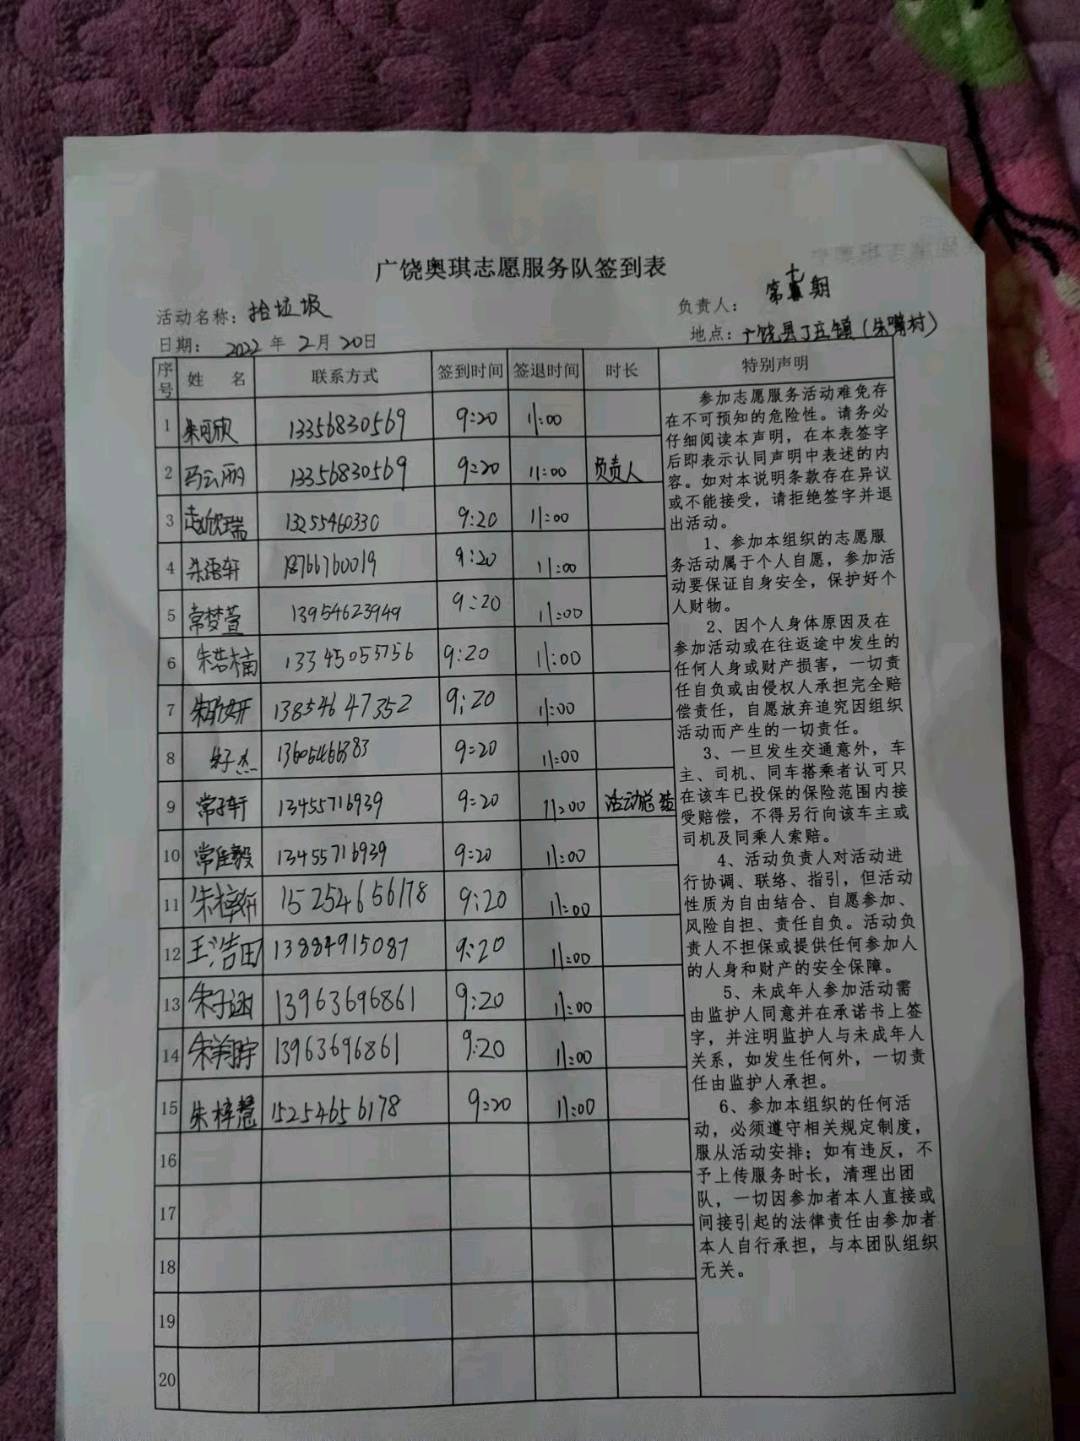 广饶奥琪志愿服务队签到表
活动名称：拾垃圾 负责人： 第十期
日期： 2022 年 2月 20日 地点：广饶县丁庄镇（朱嘴村）
序号 姓 名 联系方式 签到时间 签退时间 时长 特别声明
1 朱可欣 13356830569 9:20 11:00
2 马云丽 13356830569 9:20 11:00 负责人
3 赵欣瑞 13255460330 9:20 11:00
4 朱语轩 18766760019 9:20 11:00
5 常梦萱 13954623949 9:20 11:00
6 朱浩楠 13345055756 9:20 11:00
7 13854647352 9:20 11:00
8 朱子杰 9:20 11:00
9 常子轩 13455716939 9:20 11:00 活动总结
10 常佳毅 13455716939 9:20 11:00
11 朱梓妍 15254656178 9:20 11:00
12 王浩田 13884915087 9:20 11:00
13 朱子涵 13963696861 9:20 11:00
14 13963696861 9:20 11:00
15 朱梓慧 15254656178 9:20 11:00
16
17
18
19
20
参加志愿服务活动难免存
在不可预知的危险性。请务必
仔细阅读本声明，在本表签字
后即表示认同声明中表述的内
容。如对本说明条款存在异议
或不能接受，请拒绝签字并退
出活动。
1、参加本组织的志愿服
务活动属于个人自愿，参加活
动要保证自身安全，保护好个
人财物。
2、因个人身体原因及在
参加活动或在往返途中发生的
任何人身或财产损害，一切责
任自负或由侵权人承担完全赔
偿责任，自愿放弃追究因组织
活动而产生的一切责任。
3、一旦发生交通意外，车
主、司机、同车搭乘者认可只
在该车已投保的保险范围内接
受赔偿，不得另行向该车主或
司机及同乘人索赔。
4、活动负责人对活动进
行协调、联络、指引，但活动
性质为自由结合、自愿参加、
风险自担、责任自负。活动负
责人不担保或提供任何参加人
的人身和财产的安全保障。
5、未成年人参加活动需
由监护人同意并在承诺书上签
字，并注明监护人与未成年人
关系，如发生任何外，一切责
任由监护人承担。
6、参加本组织的任何活
动，必须遵守相关规定制度，
服从活动安排；如有违反，不
予上传服务时长，清理出团
队，一切因参加者本人直接或
间接引起的法律责任由参加者
本人自行承担，与本团队组织
无关。